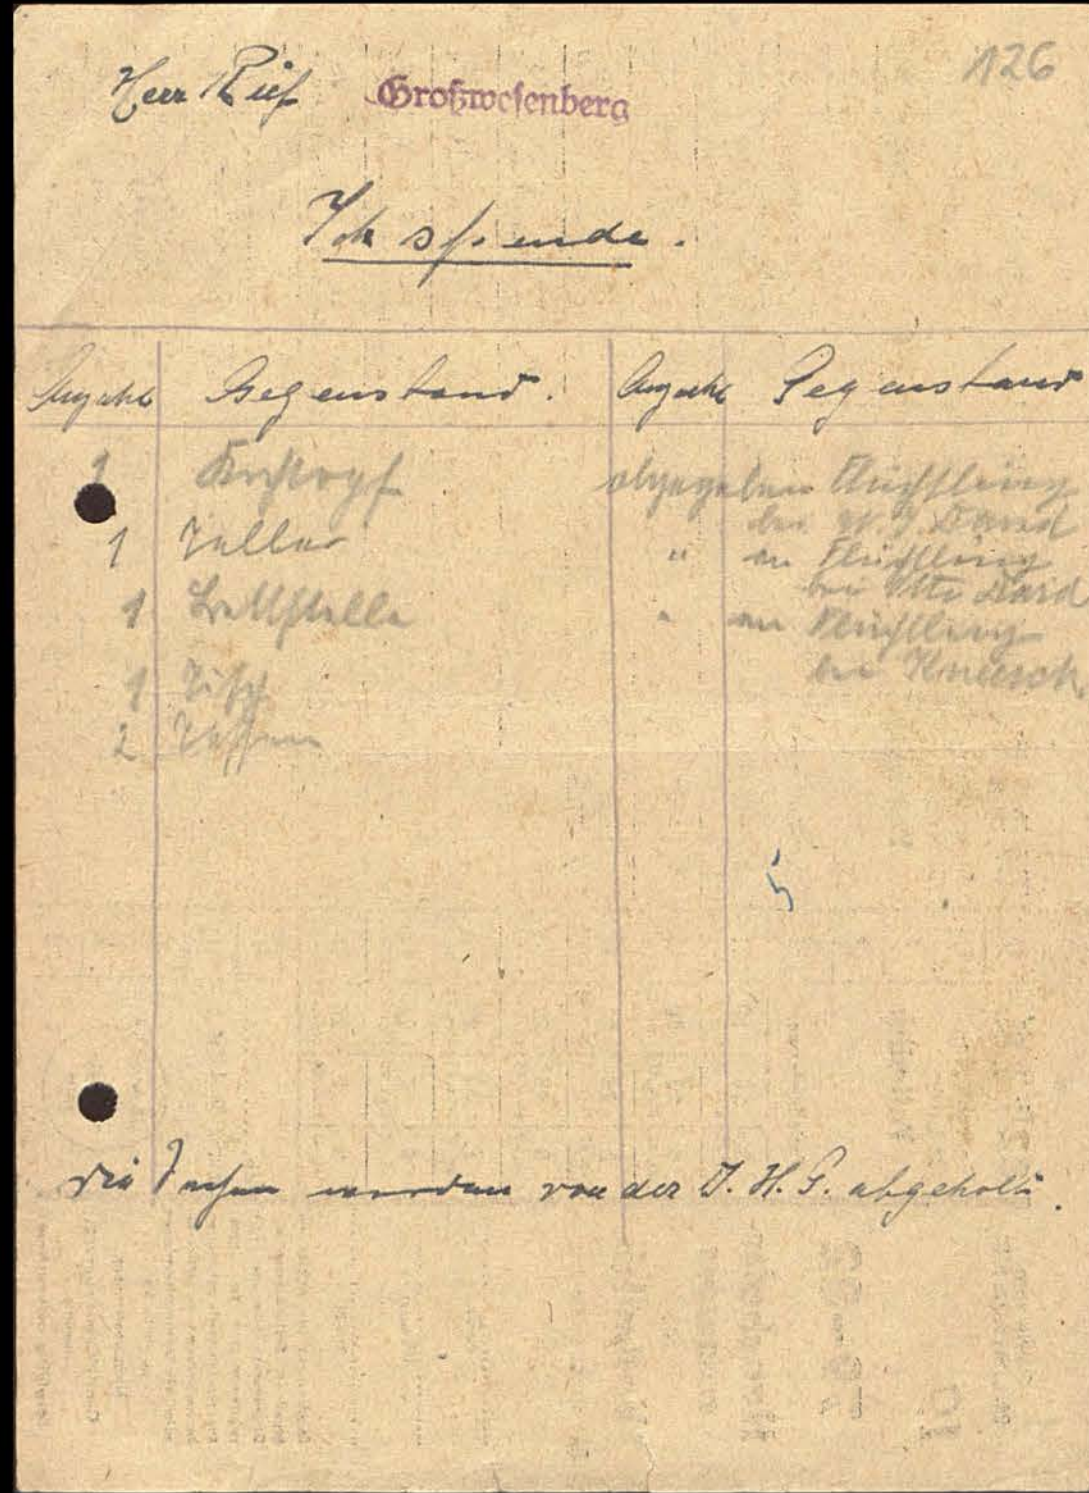 126
Herr Rief Großwesenberg
Ich spende.
Anzahl Gegenstand. Anzahl Gegenstand
1 Kochtopf abgegeben Flüchtling
bei David
1 Teller " an Flüchtling
bei Otto David
1 Bettstelle " an Flüchtling
bei
1 Tisch
2 Tassen
5
Die Sachen werden von der abgeholt.